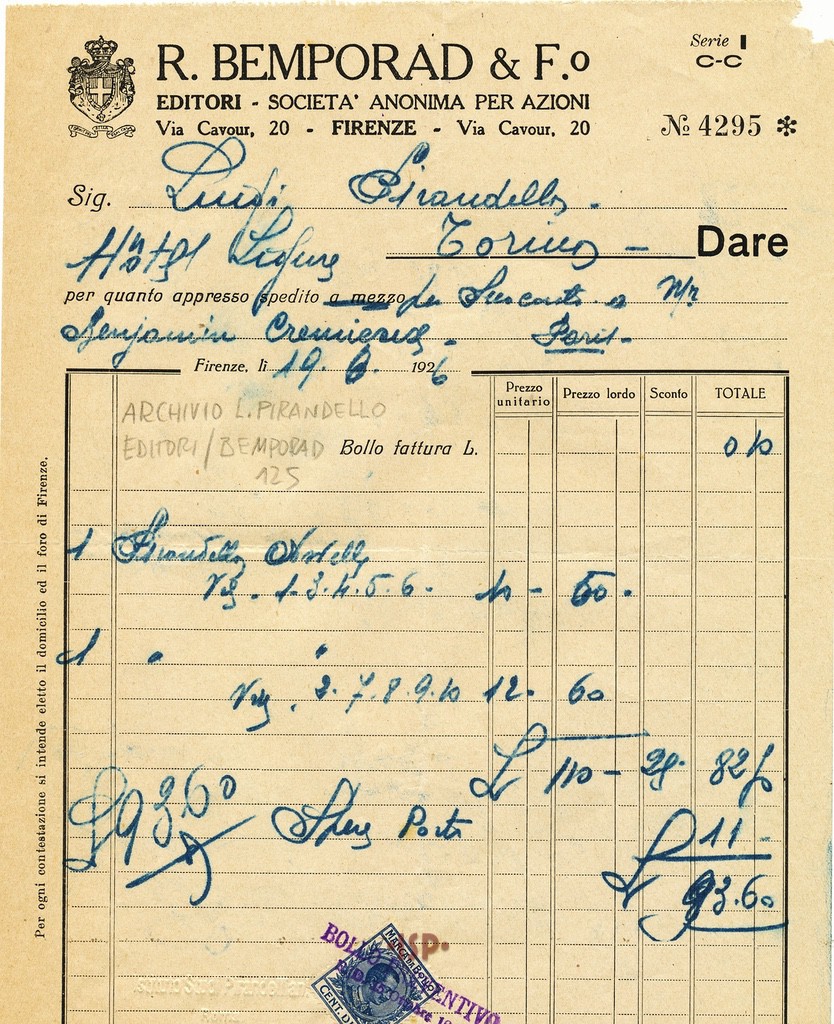 Serie I
C-C
R. BEMPORAD & F.º
EDITORI - SOCIETA' ANONIMA PER AZIONI
Via Cavour, 20 - FIRENZE - Via Cavour, 20
№ 4295 ✻
Sig. Luigi Pirandello.
Hôtel Ligure Torino - Dare
per quanto appresso spedito a mezzo per Suo conto a Mr
Benjamin Cremieux - Paris -
Firenze, lì 19. 6. 1926
Prezzo unitario Prezzo lordo Sconto TOTALE
ARCHIVIO L. PIRANDELLO
EDITORI/BEMPORAD
125
Bollo fattura L. 0 10
1 Pirandello Novelle
Vol. 1. 3. 4. 5. 6. 10 - 50.
1 " "
Vol. 2. 7. 8. 9. 10 12. 60
L 110 - 82 5
L 93 60
Spese Posta 11 -
L 93.60
Per ogni contestazione si intende eletto il domicilio ed il foro di Firenze.
MARCA DA BOLLO
CENT.